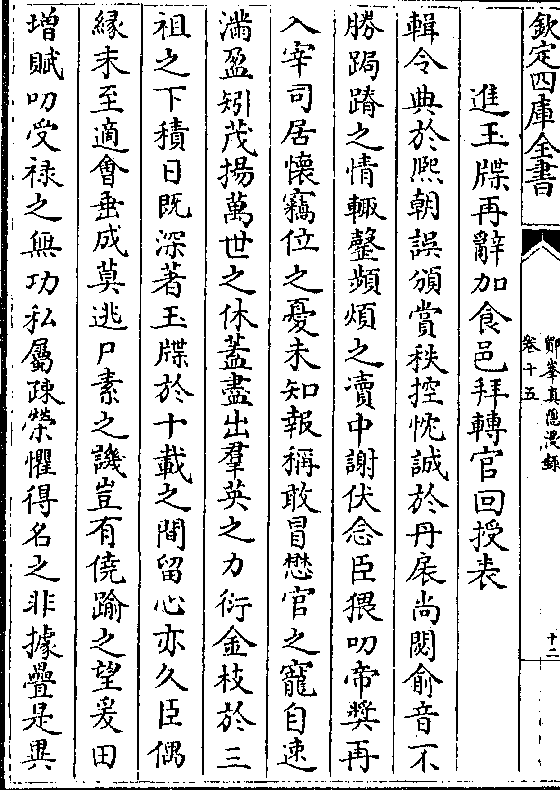 欽定四庫全書
鄮峯真隠漫録
卷十五
十二
進玉牒再辭加食邑拜轉官回授表
輯令典於熈朝誤頒賞秩控忱誠於丹扆尚閟俞音不
勝跼蹐之情輙罄頻煩之瀆中謝伏念臣猥叨帝奬再
入宰司居懷竊位之憂未知報稱敢冒懋官之寵自速
滿盈矧茂揚萬世之休葢盡出羣英之力衍金枝於三
祖之下積日既深著玉牒於十載之間留心亦久臣偶
縁末至適會垂成莫逃尸素之譏豈有僥踰之望爰田
增賦叨受禄之無功私屬疎榮懼得名之非據疊是異